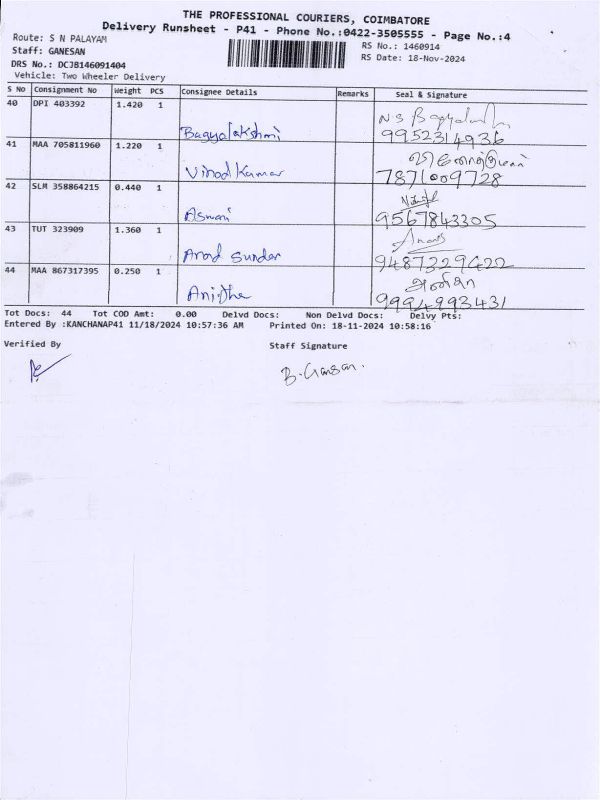 THE PROFESSIONAL COURIERS, COIMBATORE
Delivery Runsheet - P41 - Phone No.:0422-3505555 - Page No.:4
Route: S N PALAYAM
RS No.: 1460914
Staff: GANESAN
RS Date: 18-Nov-2024
DRS No.: DCJB146091404
Vehicle: Two Wheeler Delivery
S No Consignment No Weight PCS Consignee Details Remarks Seal & Signature
40 DPI 403392 1.420 1
N S
Bagyalakshmi 9952314936
41 MAA 705811960 1.220 1
Vinod Kumar 7871009728
42 SLM 358864215 0.440 1
Aswani 9567843305
43 TUT 323909 1.360 1
Sunder 9487329422
44 MAA 867317395 0.250 1
அனிதா
Anitha 9994993431
Tot Docs: 44 Tot COD Amt: 0.00 Delvd Docs: Non Delvd Docs: Delvy Pts:
Entered By :KANCHANAP41 11/18/2024 10:57:36 AM Printed On: 18-11-2024 10:58:16
Verified By
Staff Signature